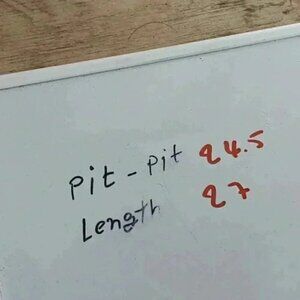 Pit - Pit 24.5
Length 27